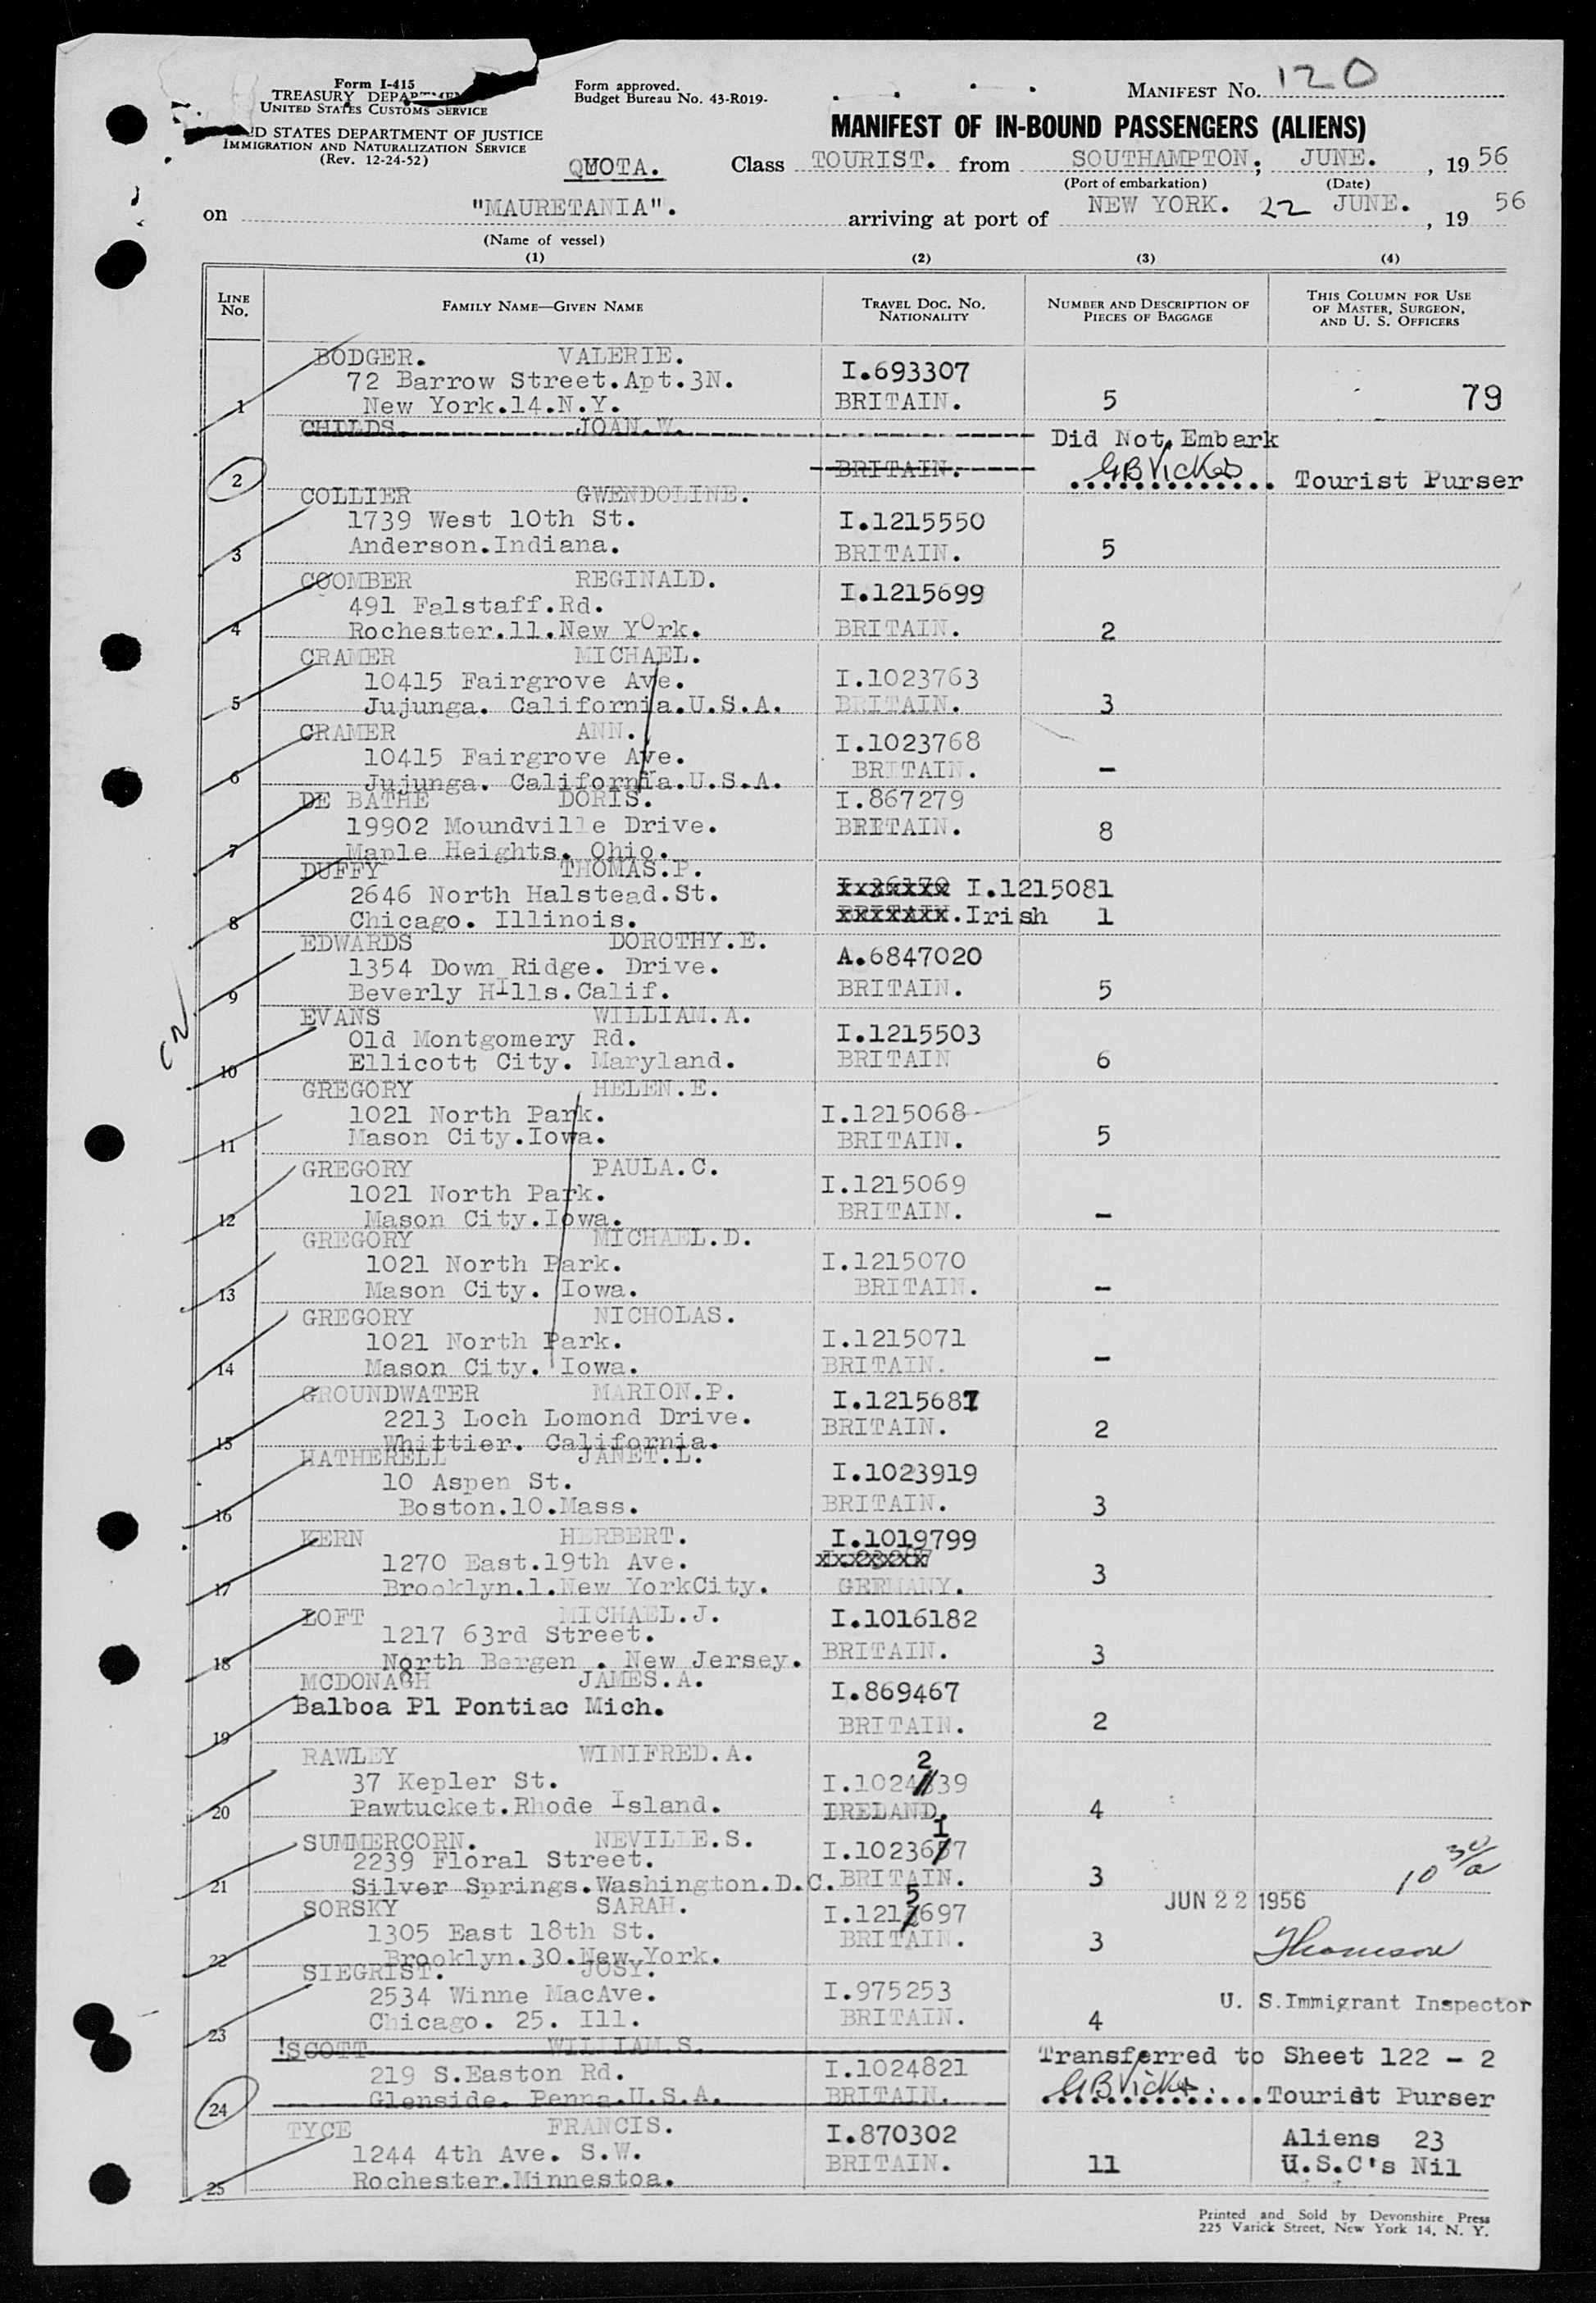 Form I-415
TREASURY DEPARTMENT
UNITED STATES CUSTOMS SERVICE
Form approved.
Budget Bureau No. 43-R019-
MANIFEST No. 120
STATES DEPARTMENT OF JUSTICE
IMMIGRATION AND NATURALIZATION SERVICE
(Rev. 12-24-52)
MANIFEST OF IN-BOUND PASSENGERS (ALIENS)
QUOTA. Class TOURIST. from SOUTHAMPTON; JUNE. , 19 56
(Port of embarkation) (Date)
on "MAURETANIA". arriving at port of NEW YORK. 22 JUNE. , 19 56
(Name of vessel)
(1) (2) (3) (4)
LINE No. FAMILY NAME—GIVEN NAME TRAVEL DOC. NO. NATIONALITY NUMBER AND DESCRIPTION OF PIECES OF BAGGAGE THIS COLUMN FOR USE OF MASTER, SURGEON, AND U. S. OFFICERS
BODGER. VALERIE.
72 Barrow Street.Apt.3N. I.693307
1 New York.14.N.Y. BRITAIN. 5 79
CHILDS. JOAN.W. Did Not Embark
2 BRITAIN. GBVickes Tourist Purser
COLLIER GWENDOLINE.
1739 West 10th St. I.1215550
3 Anderson.Indiana. BRITAIN. 5
COOMBER REGINALD.
491 Falstaff.Rd. I.1215699
4 Rochester.11.New York. BRITAIN. 2
CRAMER MICHAEL.
10415 Fairgrove Ave. I.1023763
5 Jujunga. California.U.S.A. BRITAIN. 3
CRAMER ANN.
10415 Fairgrove Ave. I.1023768
6 Jujunga. California.U.S.A. BRITAIN. –
DE BATHE DORIS. I.867279
19902 Moundville Drive. BRITAIN. 8
7 Maple Heights. Ohio.
DUFFY THOMAS.P.
2646 North Halstead.St. xxxxxxx I.1215081
8 Chicago. Illinois. xxxxxxx.Irish 1
EDWARDS DOROTHY.E.
1354 Down Ridge. Drive. A.6847020
9 Beverly HIlls.Calif. BRITAIN. 5
EVANS WILLIAM.A.
Old Montgomery Rd. I.1215503
10 Ellicott City. Maryland. BRITAIN 6
GREGORY HELEN.E.
1021 North Park. I.1215068
11 Mason City.Iowa. BRITAIN. 5
GREGORY PAULA.C.
1021 North Park. I.1215069
12 Mason City.Iowa. BRITAIN. –
GREGORY MICHAEL.D.
1021 North Park. I.1215070
13 Mason City. Iowa. BRITAIN. –
GREGORY NICHOLAS.
1021 North Park. I.1215071
14 Mason City. Iowa. BRITAIN. –
GROUNDWATER MARION.P.
2213 Loch Lomond Drive. I.1215687
15 Whittier. California. BRITAIN. 2
HATHERELL JANET.L.
10 Aspen St. I.1023919
16 Boston.10.Mass. BRITAIN. 3
KERN HERBERT. I.1019799
1270 East.19th Ave. xxxxxxx
17 Brooklyn.1.New YorkCity. GERMANY. 3
LOFT MICHAEL.J.
1217 63rd Street. I.1016182
18 North Bergen . New Jersey. BRITAIN. 3
MCDONAGH JAMES.A.
Balboa Pl Pontiac Mich. I.869467
19 BRITAIN. 2
RAWLEY WINIFRED.A. 2
37 Kepler St. I.1024 39
20 Pawtucket.Rhode Island. IRELAND. 4
SUMMERCORN. NEVILLE.S. 1
2239 Floral Street. I.10236 7
21 Silver Springs.Washington.D.C. BRITAIN. 3 10 30/a
SORSKY SARAH. 5 JUN 22 1956
1305 East 18th St. I.121 697
22 Brooklyn.30.New York. BRITAIN. 3 Thomson
SIEGRIST. JOSY.
2534 Winne MacAve. I.975253 U. S.Immigrant Inspector
23 Chicago. 25. Ill. BRITAIN. 4
!SCOTT WILLIAM.S. Transferred to Sheet 122 - 2
219 S.Easton Rd. I.1024821
24 Glenside. Penna.U.S.A. BRITAIN. GBVickes Tourist Purser
TYCE FRANCIS. I.870302 Aliens 23
1244 4th Ave. S.W. BRITAIN. 11 U.S.C's Nil
25 Rochester.Minnestoa.
Printed and Sold by Devonshire Press
225 Varick Street, New York 14, N. Y.